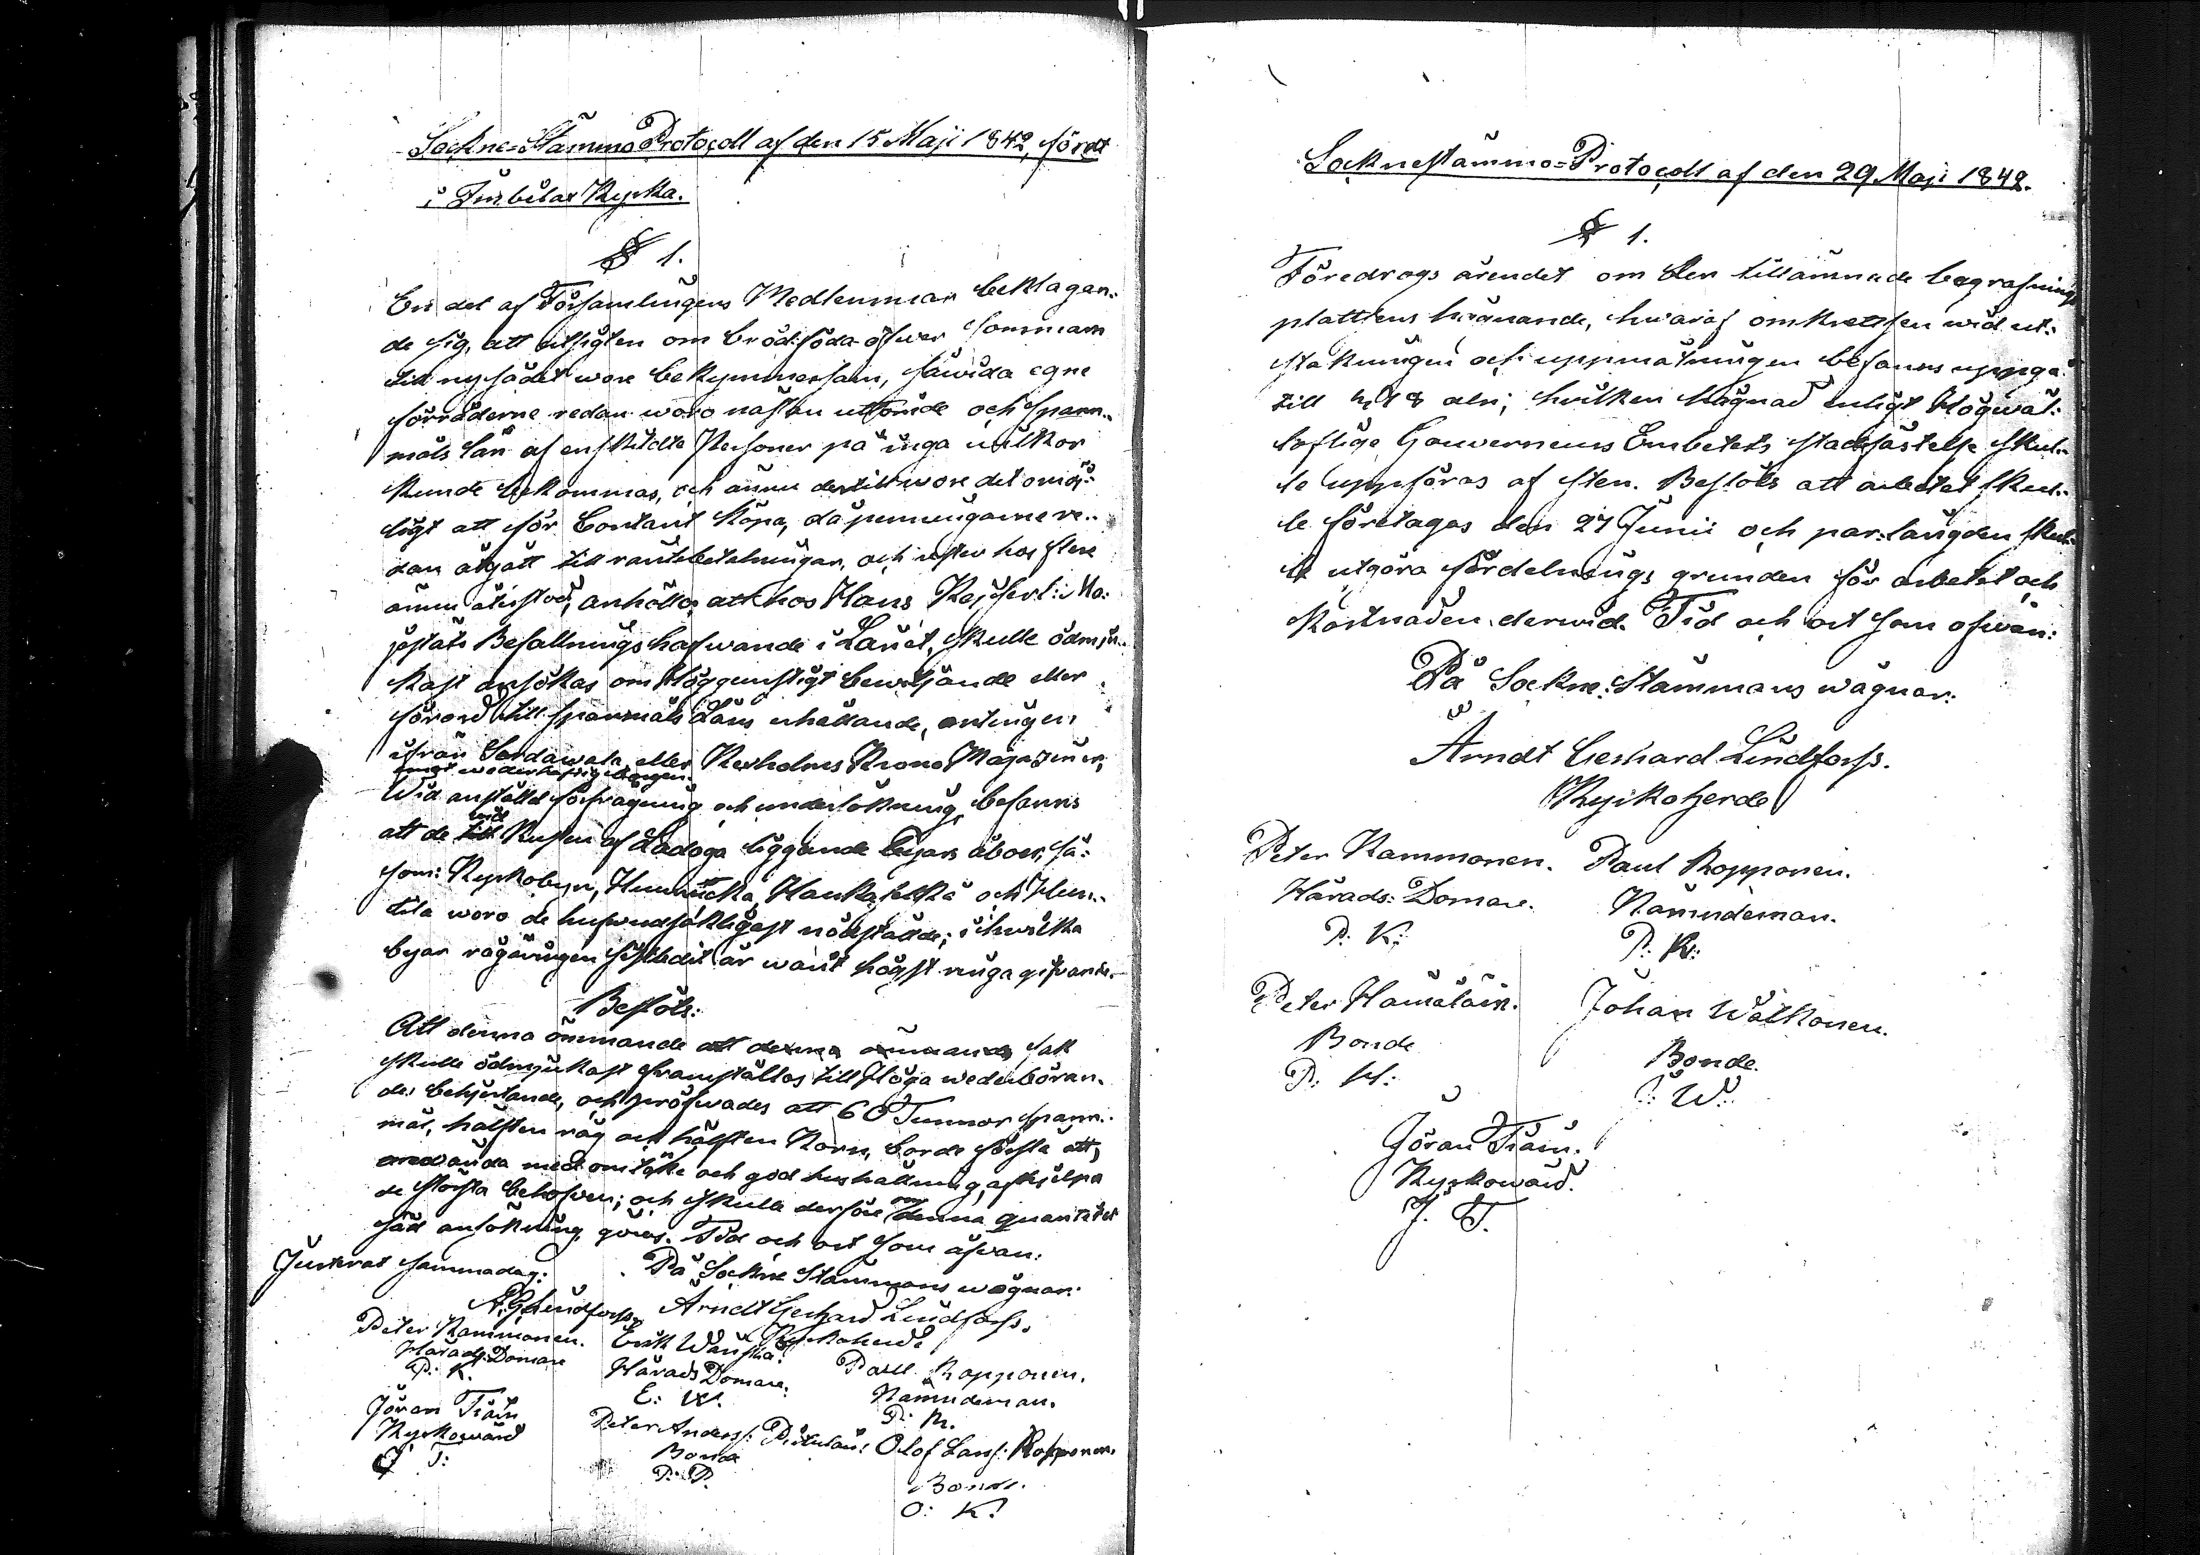 Sockne-Stämmo Protocoll af den 15 Maji 1842, fördt
i Kyrka.
§ 1.
En del af Församlingens Medlemmar beklagan-
de sig, att utsigten om brödföda öfwer sommarn
till nysådet wore bekymmersam, såwida egne
förråderne redan woro nästan uttömde och spann-
måls lån af enskildte Personer på inga wilkor
kunde bekommas, och ännu dertill wore det omöj-
ligt att för Contant köpa, då penningarne re-
dan åtgått till räntebetalningar, och rester hos flere
ännu återstod, anhöllo, att hos Hans Kejserl: Ma-
jestäts Befallningshafwande i Länet, skulle ödmju-
kast ansökas om Höggunstigt bewiljande eller
förord till spanmåls Låns erhållande, antingen
ifrån Sordawala eller Kexholms Krono Magaziner,
emot wederhäftig borgen.
Wid anställd förfrågning och undersökning, befanns
att de till wid Kusten af Ladoga liggande Byars åboer, så-
som: Kyrkobyn, och Hun-
tila woro de hufwudsakligast nödstälde; i hwilka
byar rågäringen sistledit år warit högst ringa gifvande.
Beslöts:
Att denna ömmande att denna ömmande sak
skulle ödmjukast framställas till Höga wederböran-
des behjertande, och pröfwades att 60 Tunnor spann-
mål, hälften råg och hälften Korn, borde förslå att,
använda med omtanke och god hushållning, afhjelpa
de största behofven; och skulle derföre om denna quantitet
säd ansökning göras. Tid och ort som ofwan:
Justerat samma dag: På Sockne Stämmans wägnar:
A. G. Lindforss. Arndt Gerhard Lindforss.
Kyrkoherde
Peter Kammonen. Erik Wänskä. Paul Ropponen.
Härads Domare Härads Domare. Nämndeman.
P: K. E: W. P: R.
Jöran Tiäin Peter Anders: Olof Lars: Ropponen.
Kyrkowärd Bonde Bonde.
J T: P: P. O: R.
Socknestämmo-Protocoll af den 29 Maji 1842.
§ 1.
Föredrogs ärendet om den tillämnade begrafnings
plattsens hägnande, hwaraf omkretsen wid ut-
stakningen och uppmätningen befanns uppgå
till aln; hwilken hägnad enligt Högwäl-
loflige Gouverneurs Embetets stadfästelse skul-
le uppföras af sten. Beslöts att arbetet skul-
le företagas den 27 Junii och par-längden skul-
le utgöra fördelnings grunden för arbetet och
kostnaden derwid. Tid och ort som ofwan:
På Sockne-Stämmans wägnar:
Arndt Gerhard Lindforss.
Kyrkoherde
Peter Kammonen. Paul Ropponen.
Härads-Domare. Nämndeman.
P: K: P: R:
Peter Hämäläin. Johan Wälkonen.
Bonde Bonde.
P: H: J: W:
Jöran Tiäin.
Kyrkowärd.
J. T.